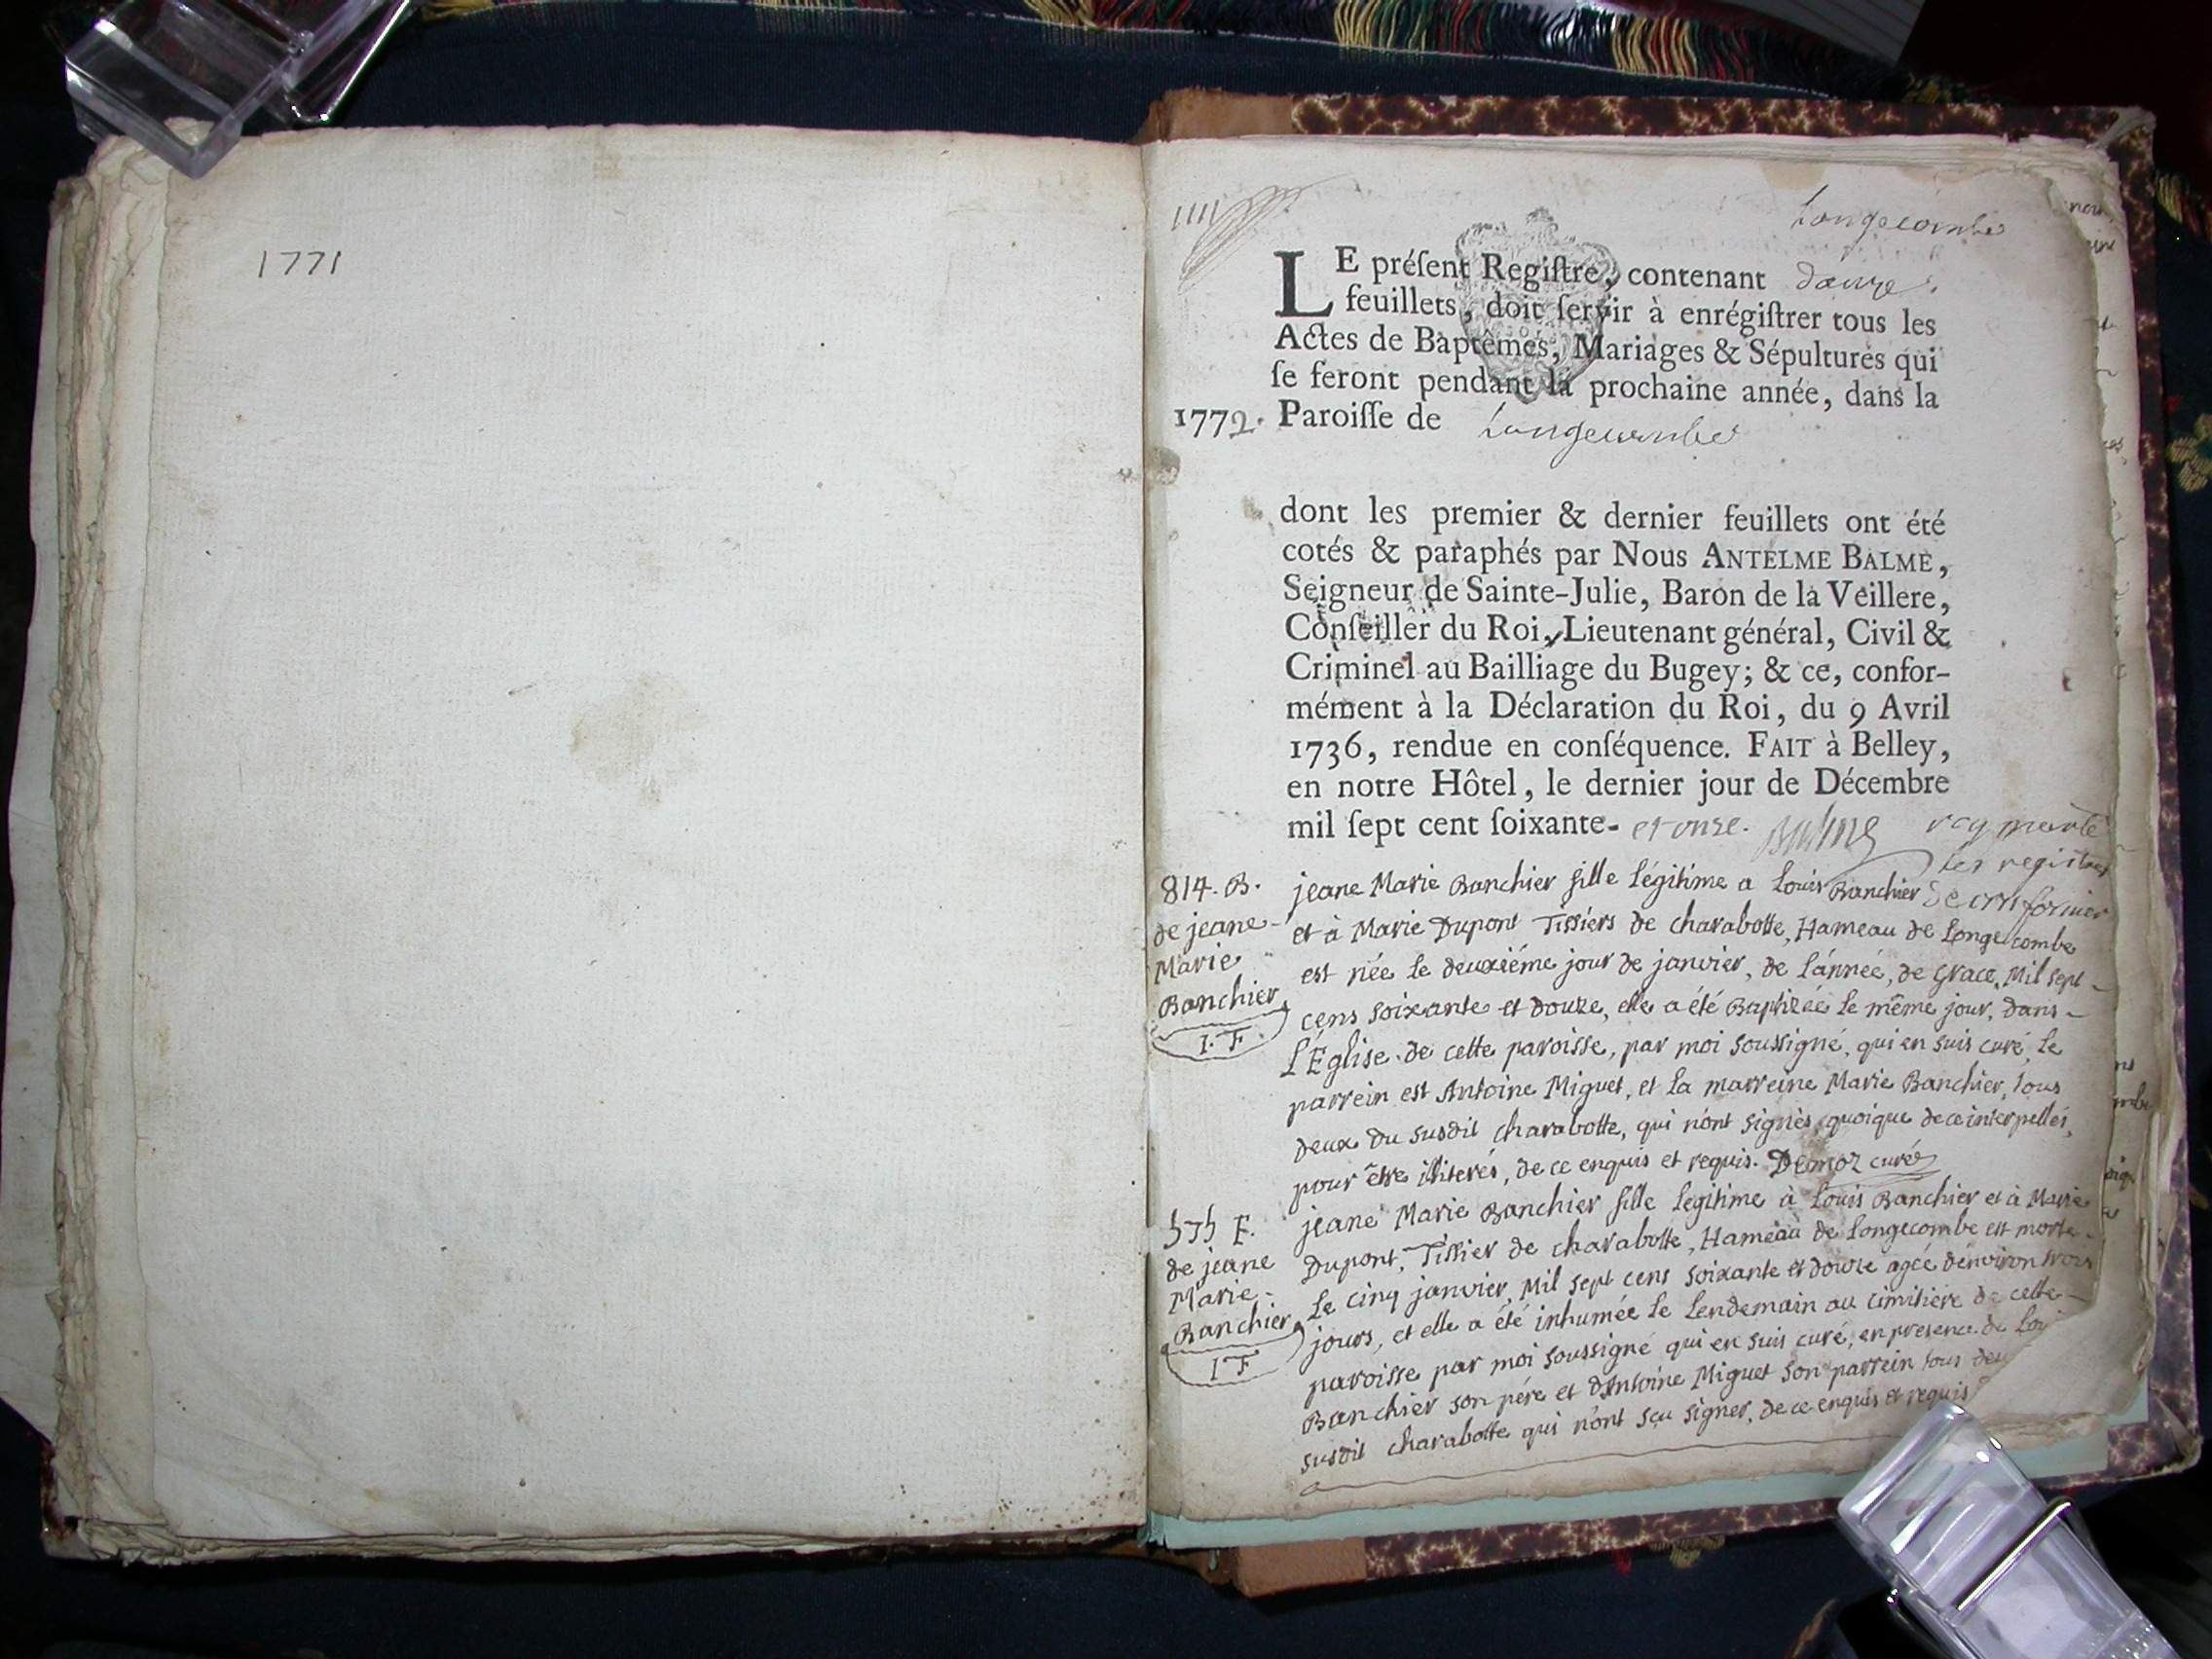 1771
Longecombe
LE préſent Regiſtre, contenant douze
feuillets, doit ſervir à enrégiſtrer tous les
Actes de Baptêmes, Mariages & Sépultures qui
ſe feront pendant la prochaine année, dans la
1772. Paroiſſe de Longecombe
dont les premier & dernier feuillets ont été
cotés & paraphés par Nous ANTELME BALME,
Seigneur de Sainte-Julie, Baron de la Veillere,
Conſeiller du Roi, Lieutenant général, Civil &
Criminel au Bailliage du Bugey; & ce, confor-
mément à la Déclaration du Roi, du 9 Avril
1736, rendue en conſéquence. FAIT à Belley,
en notre Hôtel, le dernier jour de Décembre
mil ſept cent ſoixante- et onze. Balme
les registres
814. B.
de jeane-
Marie
Banchier
I. F.
jeane Marie Banchier fille légitime a Louis Banchier
et à Marie Dupont Tissiers de charabotte, Hameau de Longecombe
est née le deuxiéme jour de janvier, de l'année, de grace, Mil sept-
cens soixante et douze, elle a été Baptizée le même jour, dans-
l'Eglise de cette paroisse, par moi soussigné, qui en suis curé, le
parrein est Antoine Miguet, et la marreine Marie Banchier, tous
deux du susdit charabotte, qui n'ont signés, quoique de ce interpellés,
pour être illiterés, de ce enquis et requis. Demoz curé
575 E.
de jeane
Marie-
Banchier
I F
jeane Marie Banchier fille legitime à Louis Banchier et à Marie
Dupont, Tissier de charabotte, Hameau de Longecombe est morte-
le cinq janvier, Mil sept cens soixante et douze agée d'environ trois
jours, et elle a été inhumée le lendemain au cimitiere de cette-
paroisse par moi soussigné qui en suis curé, en presence de
Banchier son pére et d'Antoine Miguet son parrein tous
susdit charabotte qui n'ont sçu signer, de ce enquis et requis